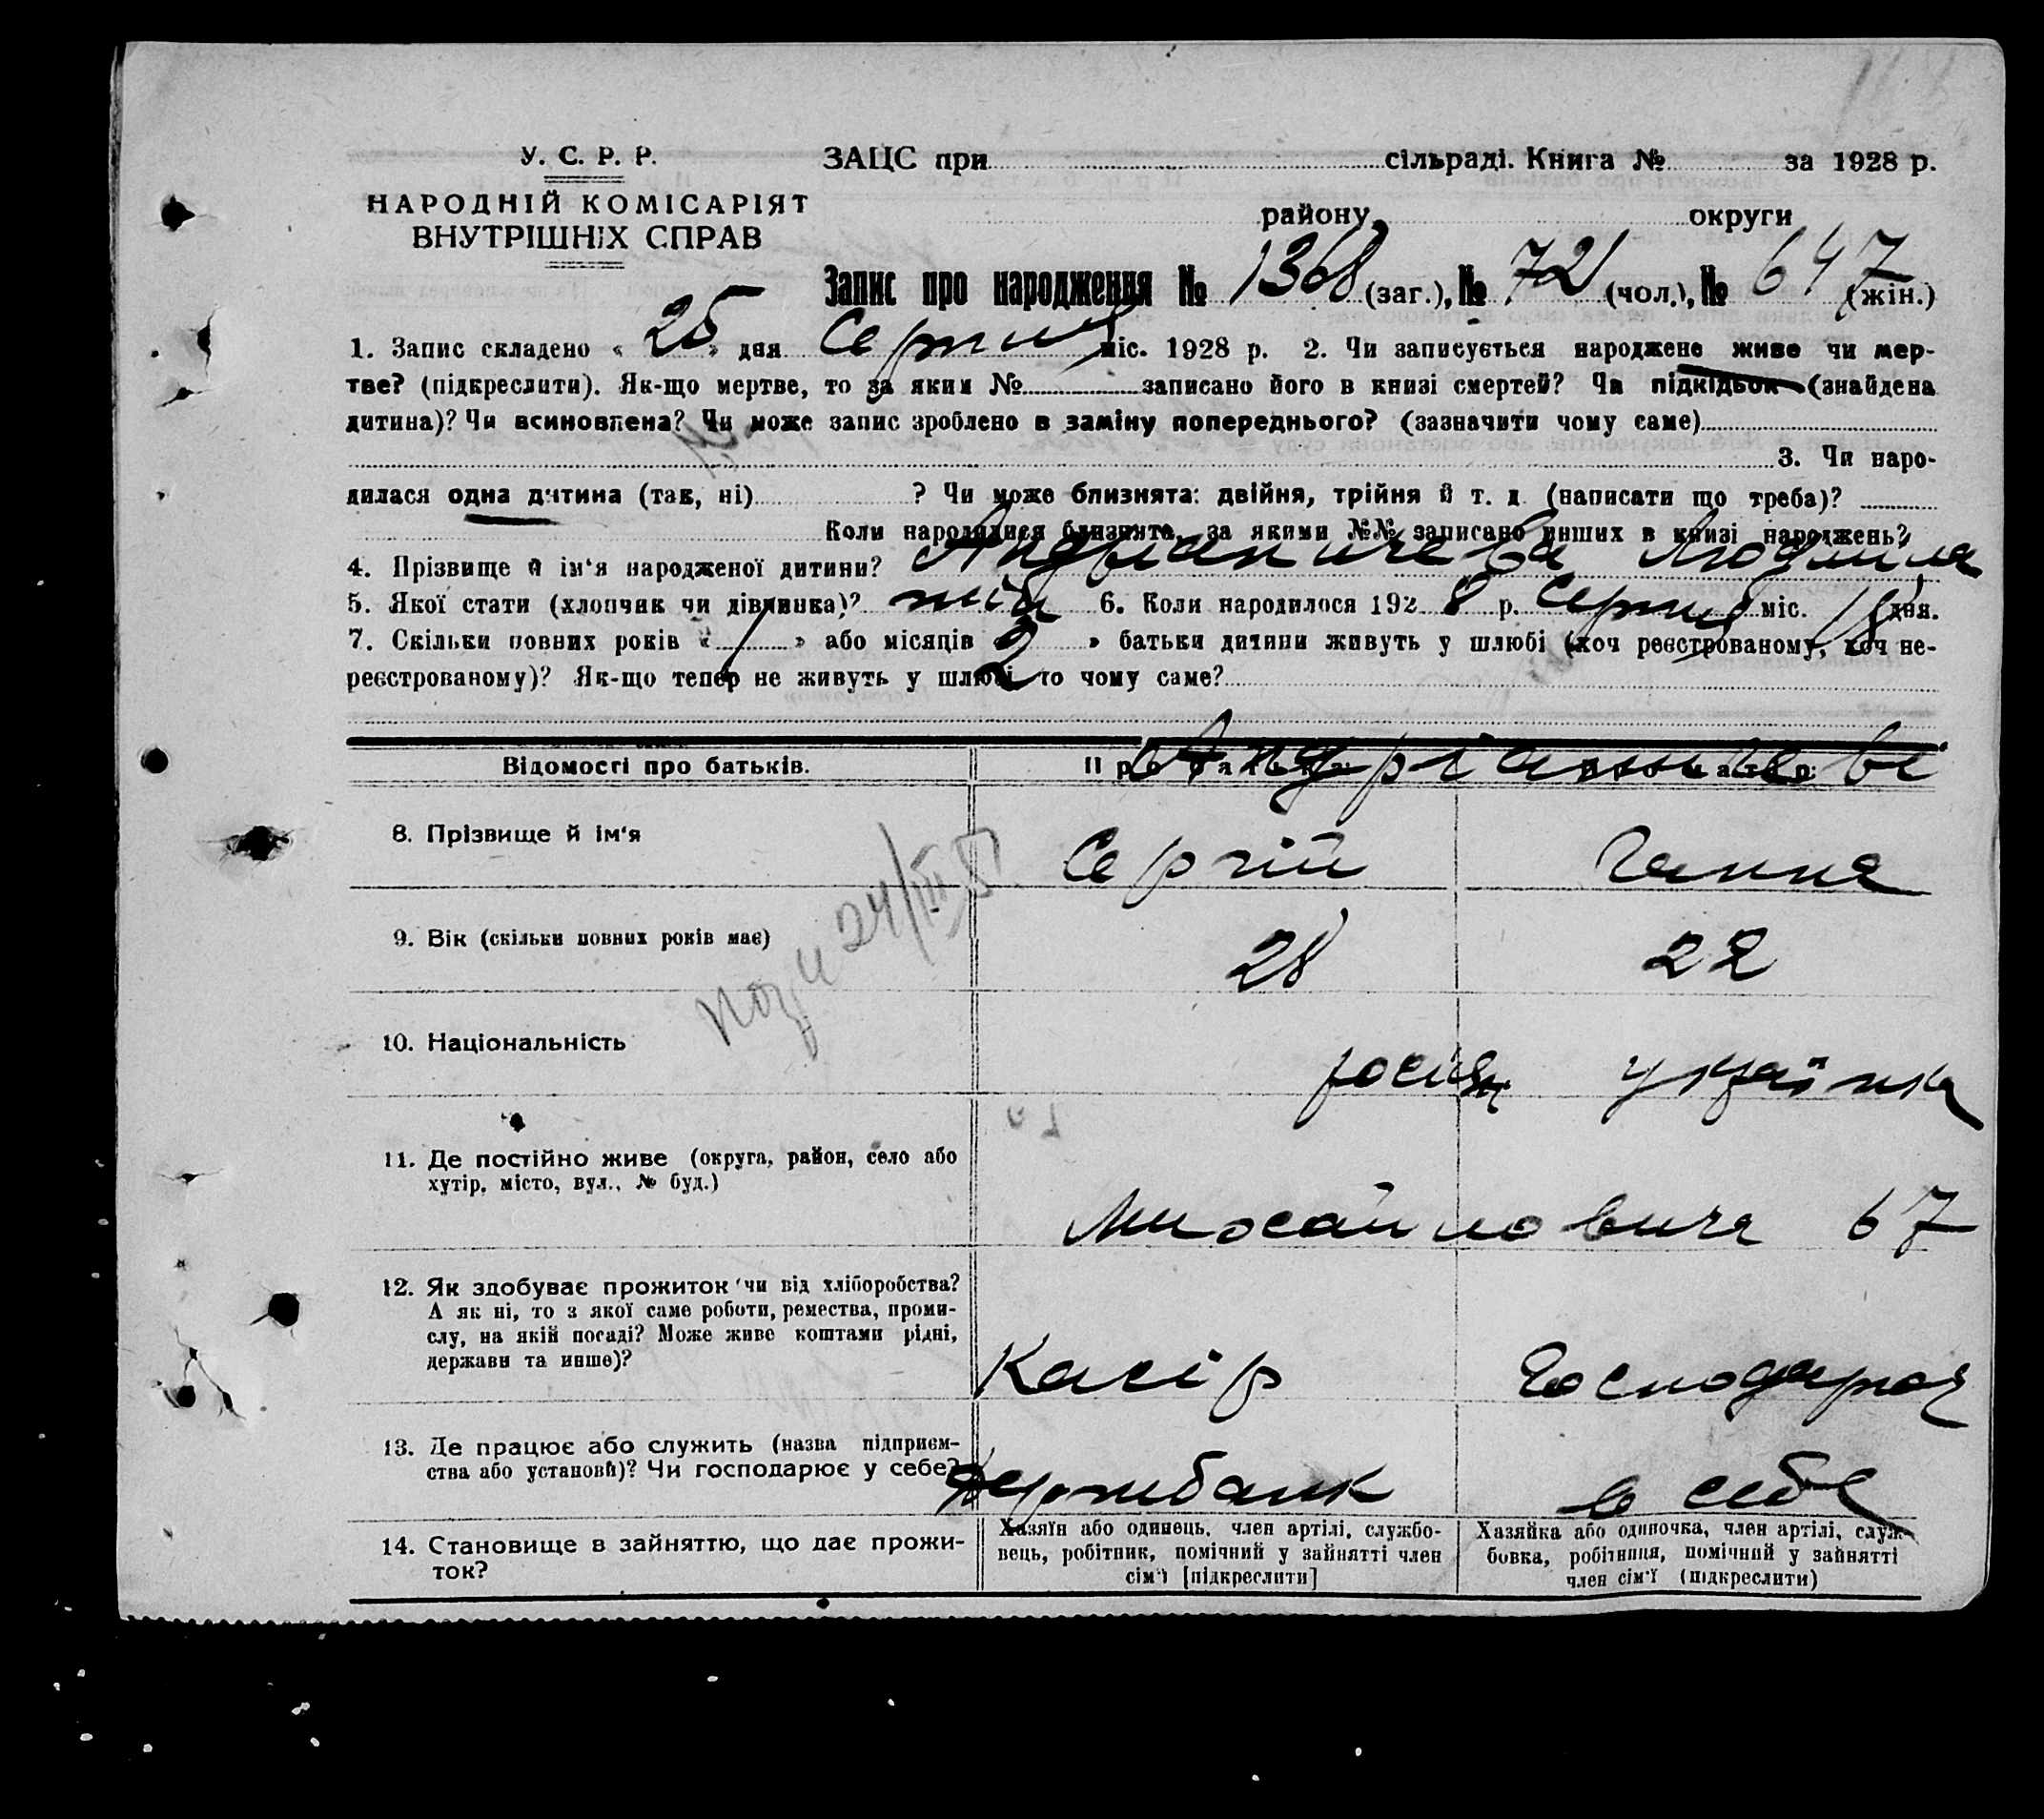 У. С. Р. Р.
НАРОДНІЙ КОМІСАРІЯТ
ВНУТРІШНІХ СПРАВ
ЗАЦС при сільраді. Книга № за 1928 р.
району округи
Запис про народження № 1368 (заг.), № 721 (чол.), № 647 (жін.)
1. Запис складено « 25 » дня Серпня міс. 1928 р. 2. Чи записується народжене живе чи мер-
тве? (підкреслити). Як-що мертве, то за яким № записано його в книзі смертей? Чи підкідьок (знайдена
дитина)? Чи всиновлена? Чи може запис зроблено в заміну попереднього? (зазначити чому саме)
3. Чи наро-
дилася одна дитина (так, ні) ? Чи може близнята: двійня, трійня й т. д. (написати що треба)?
Коли народилися близнята, за якими №№ записано инших в книзі народжень?
4. Прізвище й ім'я народженої дитини? Андріаничева Людмила
5. Якої стати (хлопчик чи дівчинка)? жін 6. Коли народилося 192 8 р. Серпня міс. 18 дня.
7. Скільки повних років « / » або місяців 2 » батьки дитини живуть у шлюбі (хоч реєстрованому, хоч не-
реєстрованому)? Як-що тепер не живуть у шлюбі то чому саме?
Відомості про батьків.
8. Прізвище й ім'я Сергій Ганна
9. Вік (скільки повних років має) 28 22
24/III 51
10. Національність росіян. українка
11. Де постійно живе (округа, район, село або
хутір, місто, вул., № буд.)
Михайловича 67
12. Як здобуває прожиток чи від хліборобства?
А як ні, то з якої саме роботи, ремества, проми-
слу, на якій посаді? Може живе коштами рідні,
держави та инше)?
Касір Господарює
13. Де працює або служить (назва підприєм-
ства або установи)? Чи господарює у себе?
Держбанк в себе
14. Становище в зайняттю, що дає прожи-
ток?
Хазяїн або одинець, член артілі, службо-
вець, робітник, помічний у зайнятті член
сім'ї [підкреслити]
Хазяйка або одиночка, член артілі, служ-
бовка, робітниця, помічний у зайнятті
член сім'ї (підкреслити)